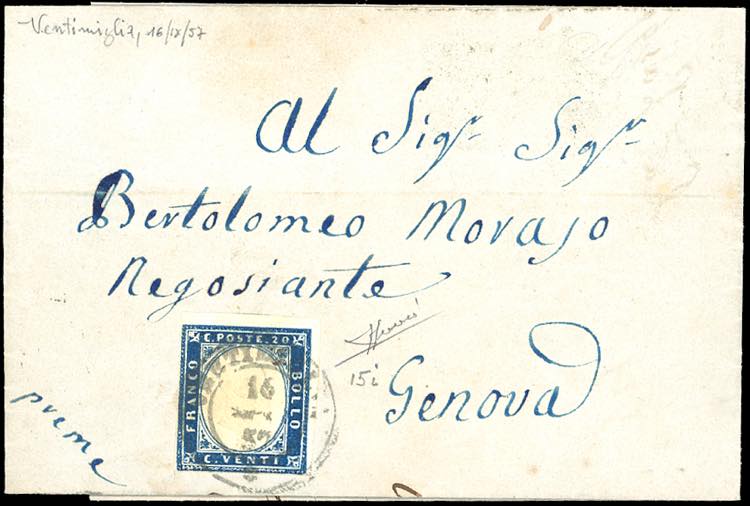 Ventimiglia, 16/IX/57
Al Sigr. Sigr.
Bertolomeo Moraso
Negosiante
Genova
15i
preme
C. POSTE. 20
FRANCO
BOLLO
C. VENTI
16